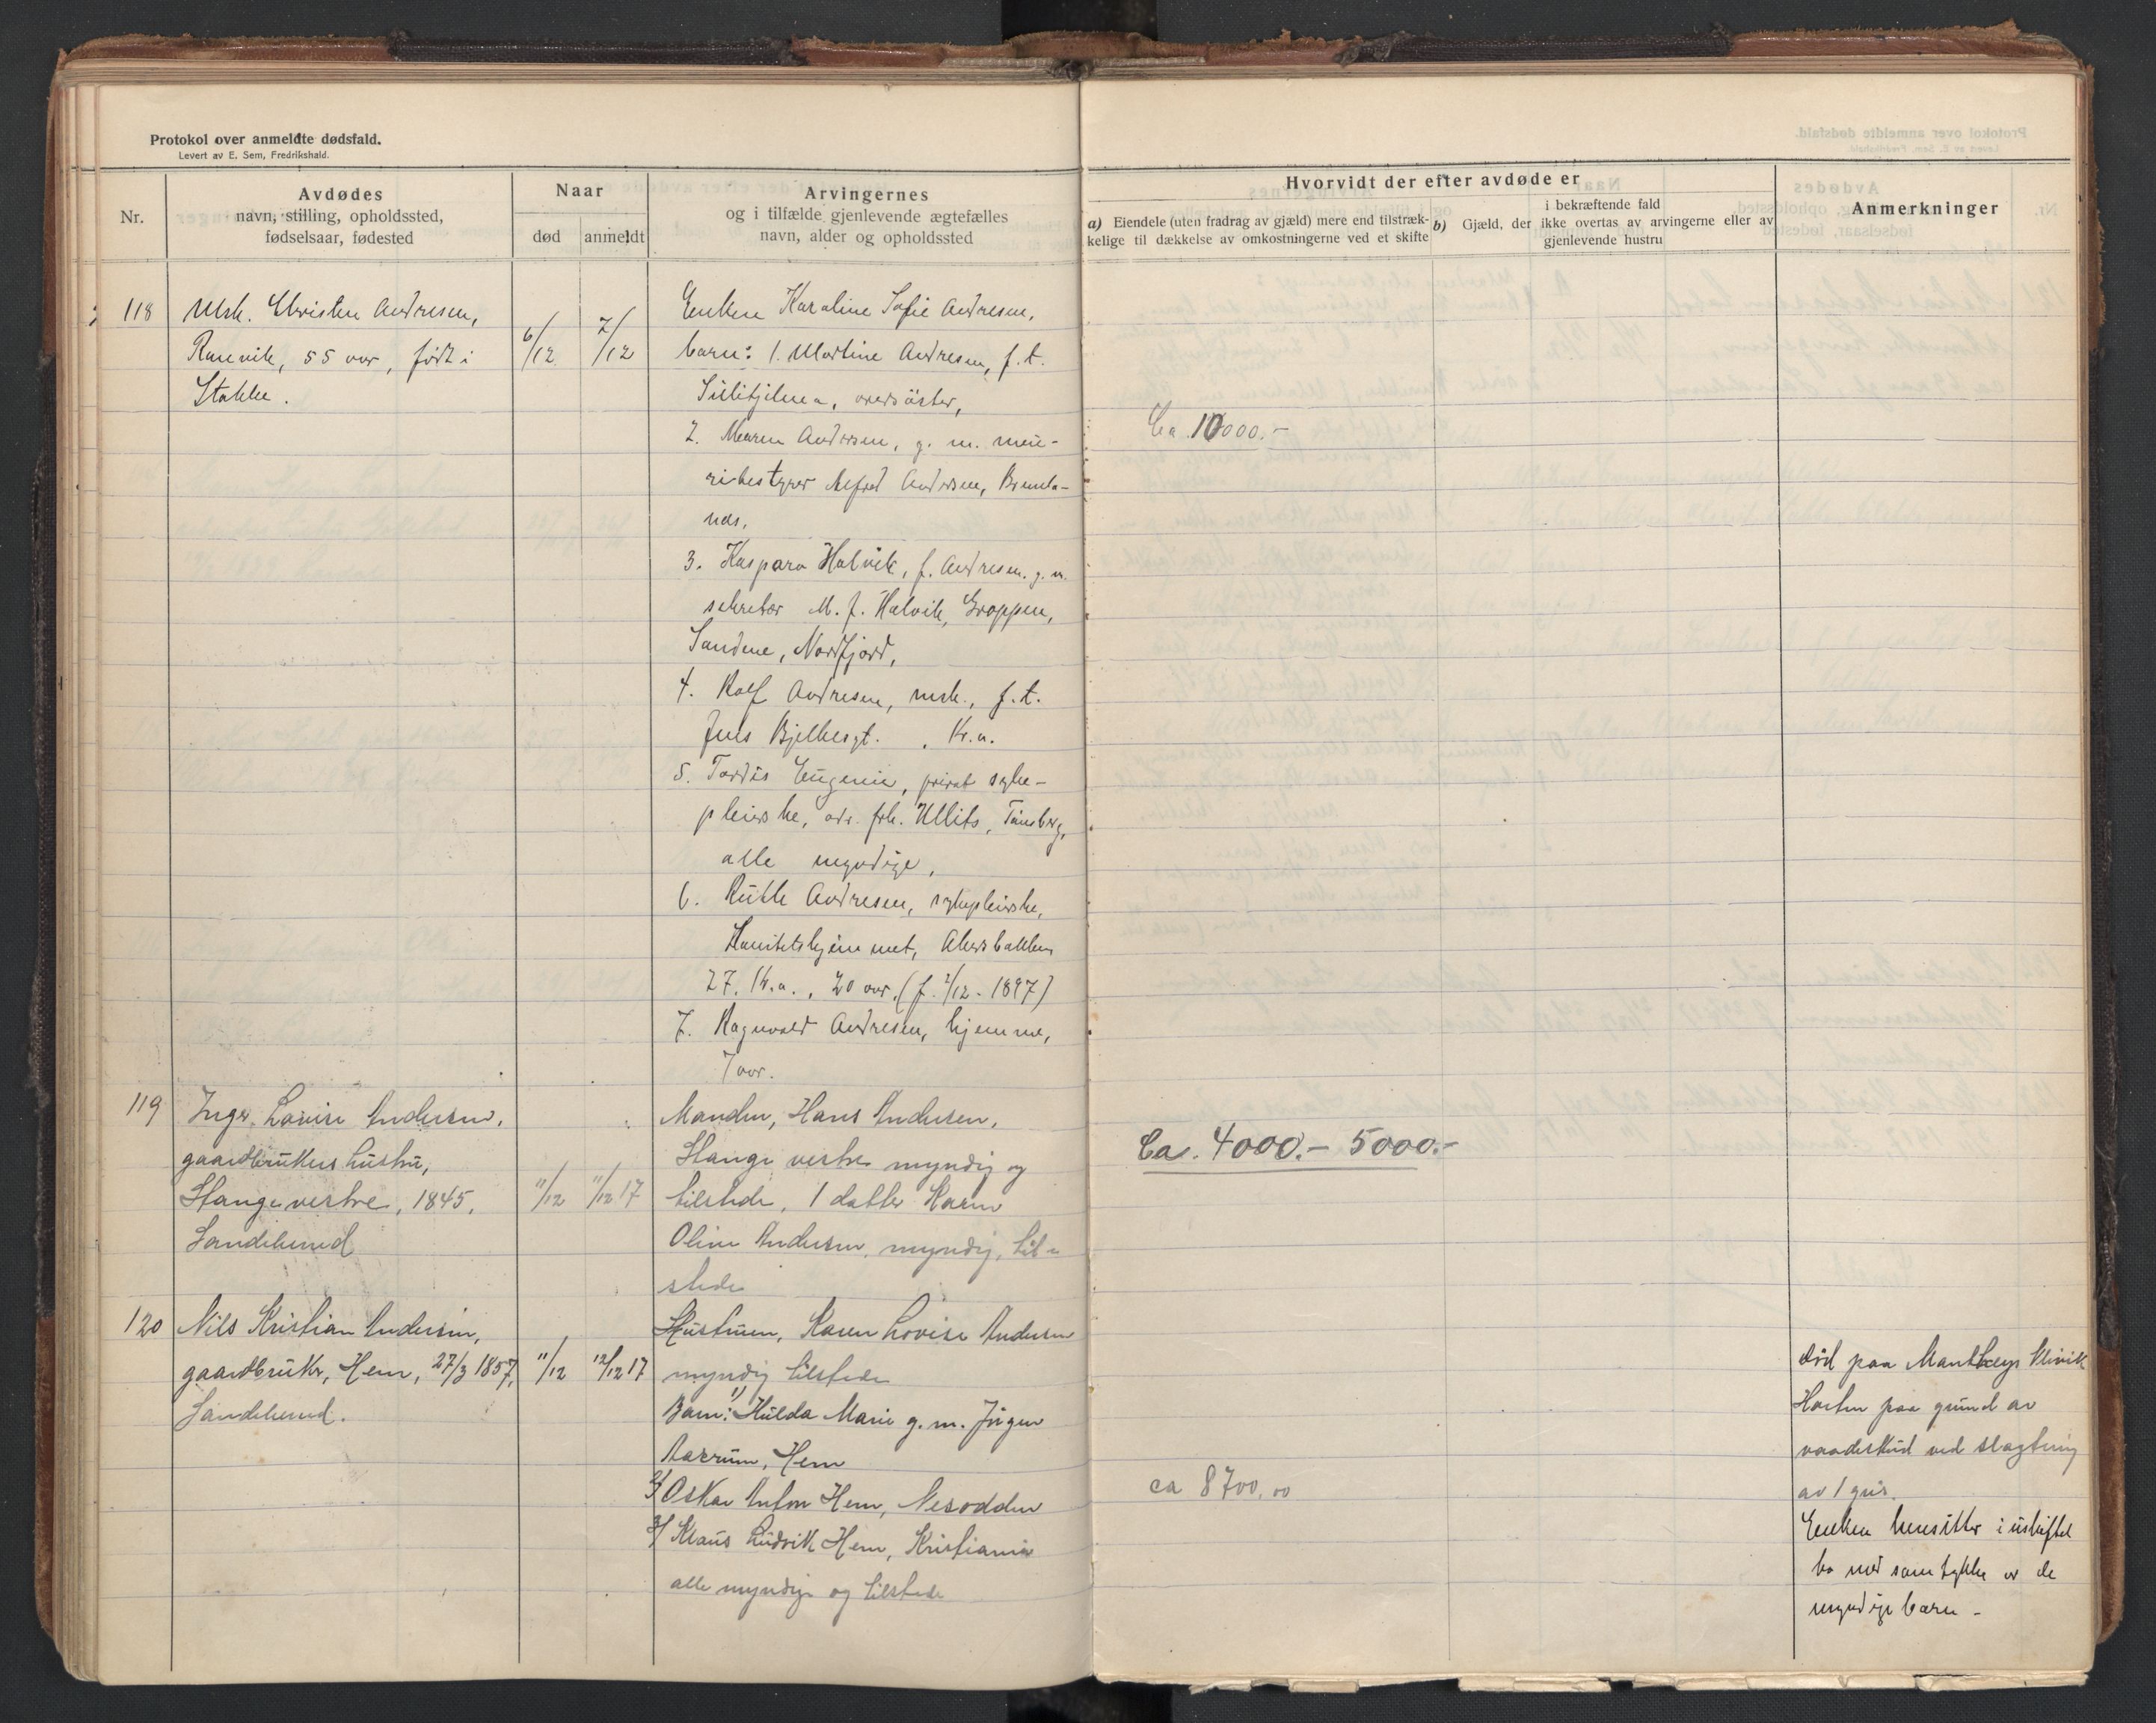 Protokol over anmeldte dødsfald.
Levert av E. Sem, Fredrikshald.
Nr.
Avdødes
navn, stilling, opholdssted,
fødselsaar, fødested
Naar
død
anmeldt
Arvingernes
og i tilfælde gjenlevende ægtefælles
navn, alder og opholdssted
Hvorvidt der efter avdøde er
a) Eiendele (uten fradrag av gjæld) mere end tilstræk-
kelige til dækkelse av omkostningerne ved et skifte
b) Gjæld, der i bekræftende fald
ikke overtas av arvingerne eller av
gjenlevende hustru
Anmerkninger
118
Msk. Christen Andresen,
Ranvik, 55 aar, født i
Stokke.
6/12
7/12
Enken Karoline Sofie Andresen,
barn: 1. Martine Andresen, f. t.
Sulitjelma, oversöster,
2. Maren Andresen, g. m. mei-
eribestyrer Alfred Andersen, Brunla-
nes,
3. Kaspara Halvik, f. Andresen. g. m.
sekretær M. J. Halvik, Gloppen,
Sandene, Nordfjord,
4. Rolf Andresen, msk., f. t.
Jens Bjelkesgt. , Kr.a.
5. Tordis Eugenie, privat syke-
pleierske, adr. frk. Ullits, Tönsberg,
alle myndige,
6. Ruth Andresen, sykepleierske,
Sanitetshjemmet, Akersbakken
27. Kr.a., 20 aar, (f. 2/12 - 1897)
7. Ragnvald Andresen, hjemme,
7 aar.
Ca 10000.-
119
Inger Lovise Andersen,
gaardbrukers hustru,
Hauge vestre, 1845,
Sandeherred
11/12
11/12 17
Manden, Hans Andersen,
Hauge vestre myndig og
tilstede, 1 datter Karen
Oline Andersen, myndig, til-
stede
Ca. 4000.- 5000.-
120
Nils Kristian Andersen,
gaardbruker, Hem, 27/3 1857,
Sandeherred.
11/12
12/12 17
Hustruen, Karen Lovise Andersen
myndig tilstede
Barn: 1) Hulda Marie g. m. Jörgen
Aarrum, Hem
2) Oskar Anton Hem, Nesodden
3) Klaus Ludvik Hem, Kristiania
alle myndige og tilstede
ca 8700,00
död paa Mantheys Klinik
Horten paa grund av
vaadeskud ved slagtning
av 1 gris.
Enken hensitter i uskiftet
bo med samtykke av de
myndige barn -